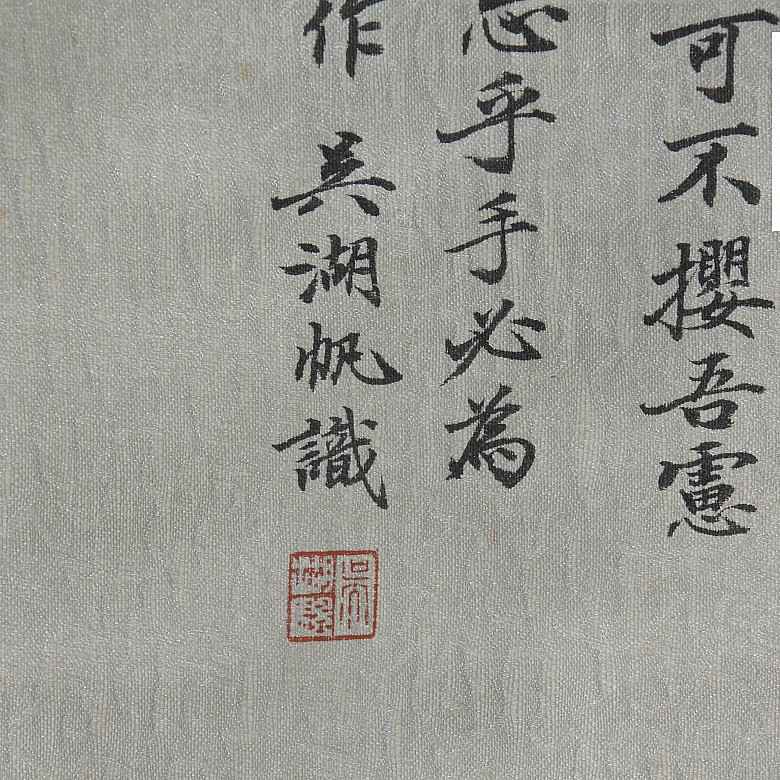 可不攖吾慮
忘乎手必為
作 吳湖帆識
吳湖帆